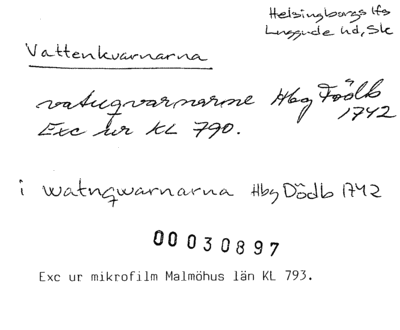 Helsingborgs lfs
Luggude hd, Sk
Vattenkvarnarna
vatuqvarnarne Hbg Födlb
1742
Exc ur KL 790.
i watnqwarnarna Hbg Dödb 1742
00 030897
Exc ur mikrofilm Malmöhus län KL 793.